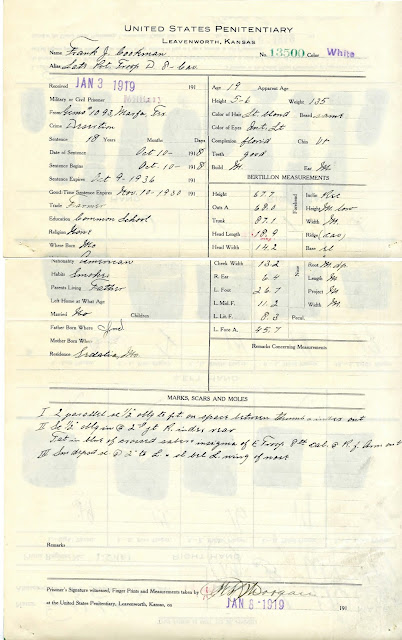 UNITED STATES PENITENTIARY
LEAVENWORTH, KANSAS
Name Frank J. Cookman No. 13500 Color White
Alias Late Pvt Troop D. 8- Cav
Received JAN 3 1919 191
Military or Civil Prisoner Military
From Marfa, Tex
Crime Desertion
Sentence 18 Years Months Days
Date of Sentence Oct 10- 1918
Sentence Begins Oct 10- 1918
Sentence Expires Oct 9- 1936
Good Time Sentence Expires Nov. 10- 1930
Trade Farmer
Education Common School
Religion None
Where Born Mo
Nationality American
Habits Smoke
Parents Living Father
Left Home at What Age
Married No Children
Father Born Where Ind
Mother Born Where
Residence Sedalia, Mo
Age 19 Apparent Age
Height 5-6 Weight 135
Color of Hair Lt blond Beard same
Color of Eyes Lt
Complexion florid Chin
Teeth good
Build M Ear M
BERTILLON MEASUREMENTS
Height 67.7
Outs A 68.0
Trunk 87.1
Head Length 18.9
Head Width 14.2
Cheek Width 13.2
R. Ear 6.4
L. Foot 26.7
L. Mid. F. 11.2
L. Lit. F. 8.3
L. Fore A. 45.7
Forehead
Inclin Rec
Height M low
Width M
Ridge (cav)
Base
Nose
Root M dp.
Length M
Project M
Width M
Pecul.
Remarks Concerning Measurements
MARKS, SCARS AND MOLES
I 2 parallel ft on space between thumb & index out
II Sc 1/2 2d jt R. index rear
Tat in blue of crossed sabers insignia of E Troop 8th Cal. @ R. f. arm out
III L wing of nose
Remarks
Prisoner's Signature witnessed, Finger Prints and Measurements taken by
at the United States Penitentiary, Leavenworth, Kansas, on JAN 8 - 1919 191